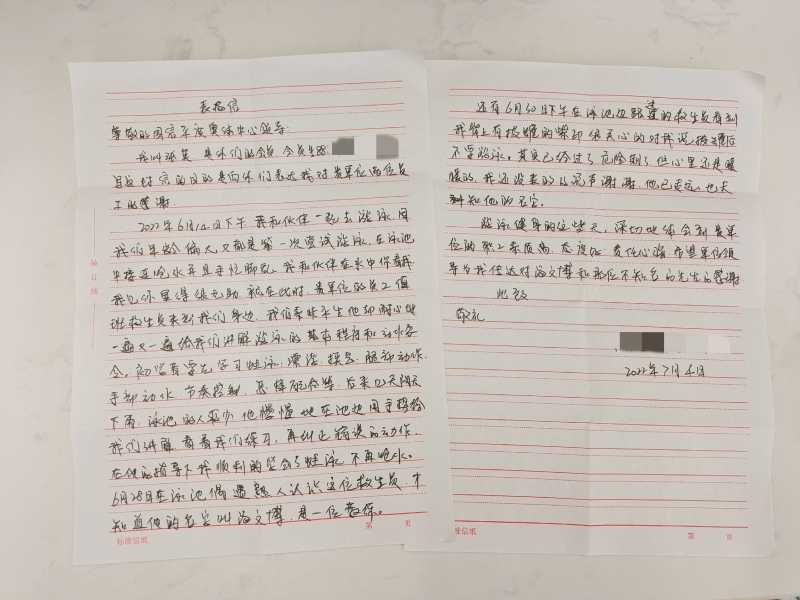 表扬信
尊敬的国宾年度奥体中心领导:
我叫张英 是你们的会员 会员号88
写这封信的目的是向你们表达我对贵单位两位员
工的感谢
2022年6月14日下午 我和伙伴一起去游泳 因
我们年龄偏大 又都是第一次尝试游泳 在泳池
里接连呛水 手忙脚乱 我和伙伴在水中你看我
我看你显得很无助 就在此时 贵单位的员工值
班救生员来到我们身边 我们素昧平生他却耐心地
一遍又一遍给我们讲解游泳的基本程序和动作要
令 初学者学先学习蛙泳 漂浮 换气 腿部动作
手部动作 节奏控制 怎样配合等 后来几天阴天
下雨 泳池的人来少 他慢慢地在池边用手势给
我们讲解 看着我们练习 再纠正错误的动作
在他的指导下我顺利的学会了蛙泳 不再呛水。
6月28日在泳池偶遇熟人认识这位救生员 才
知道他的名字叫 文博 是一位教练。
标准信纸
第 页
装订线
还有6月30日下午在泳池边路过的救生员看到
我背上有拔罐的紫印 很关心的对我说拔罐后
不要游泳。其实已经过了危险期了但心里还是暖
暖的 我还没来的及说声谢谢 他已走远 也未
知他的名字
游泳健身的这些天 深切地体会到贵单
位的职工素质高 态度好 责任心强 希望单位领
导为我传达对 文博和那位不知名的先生的感谢
此致
敬礼
2022年7月4日
标准信纸
第 页